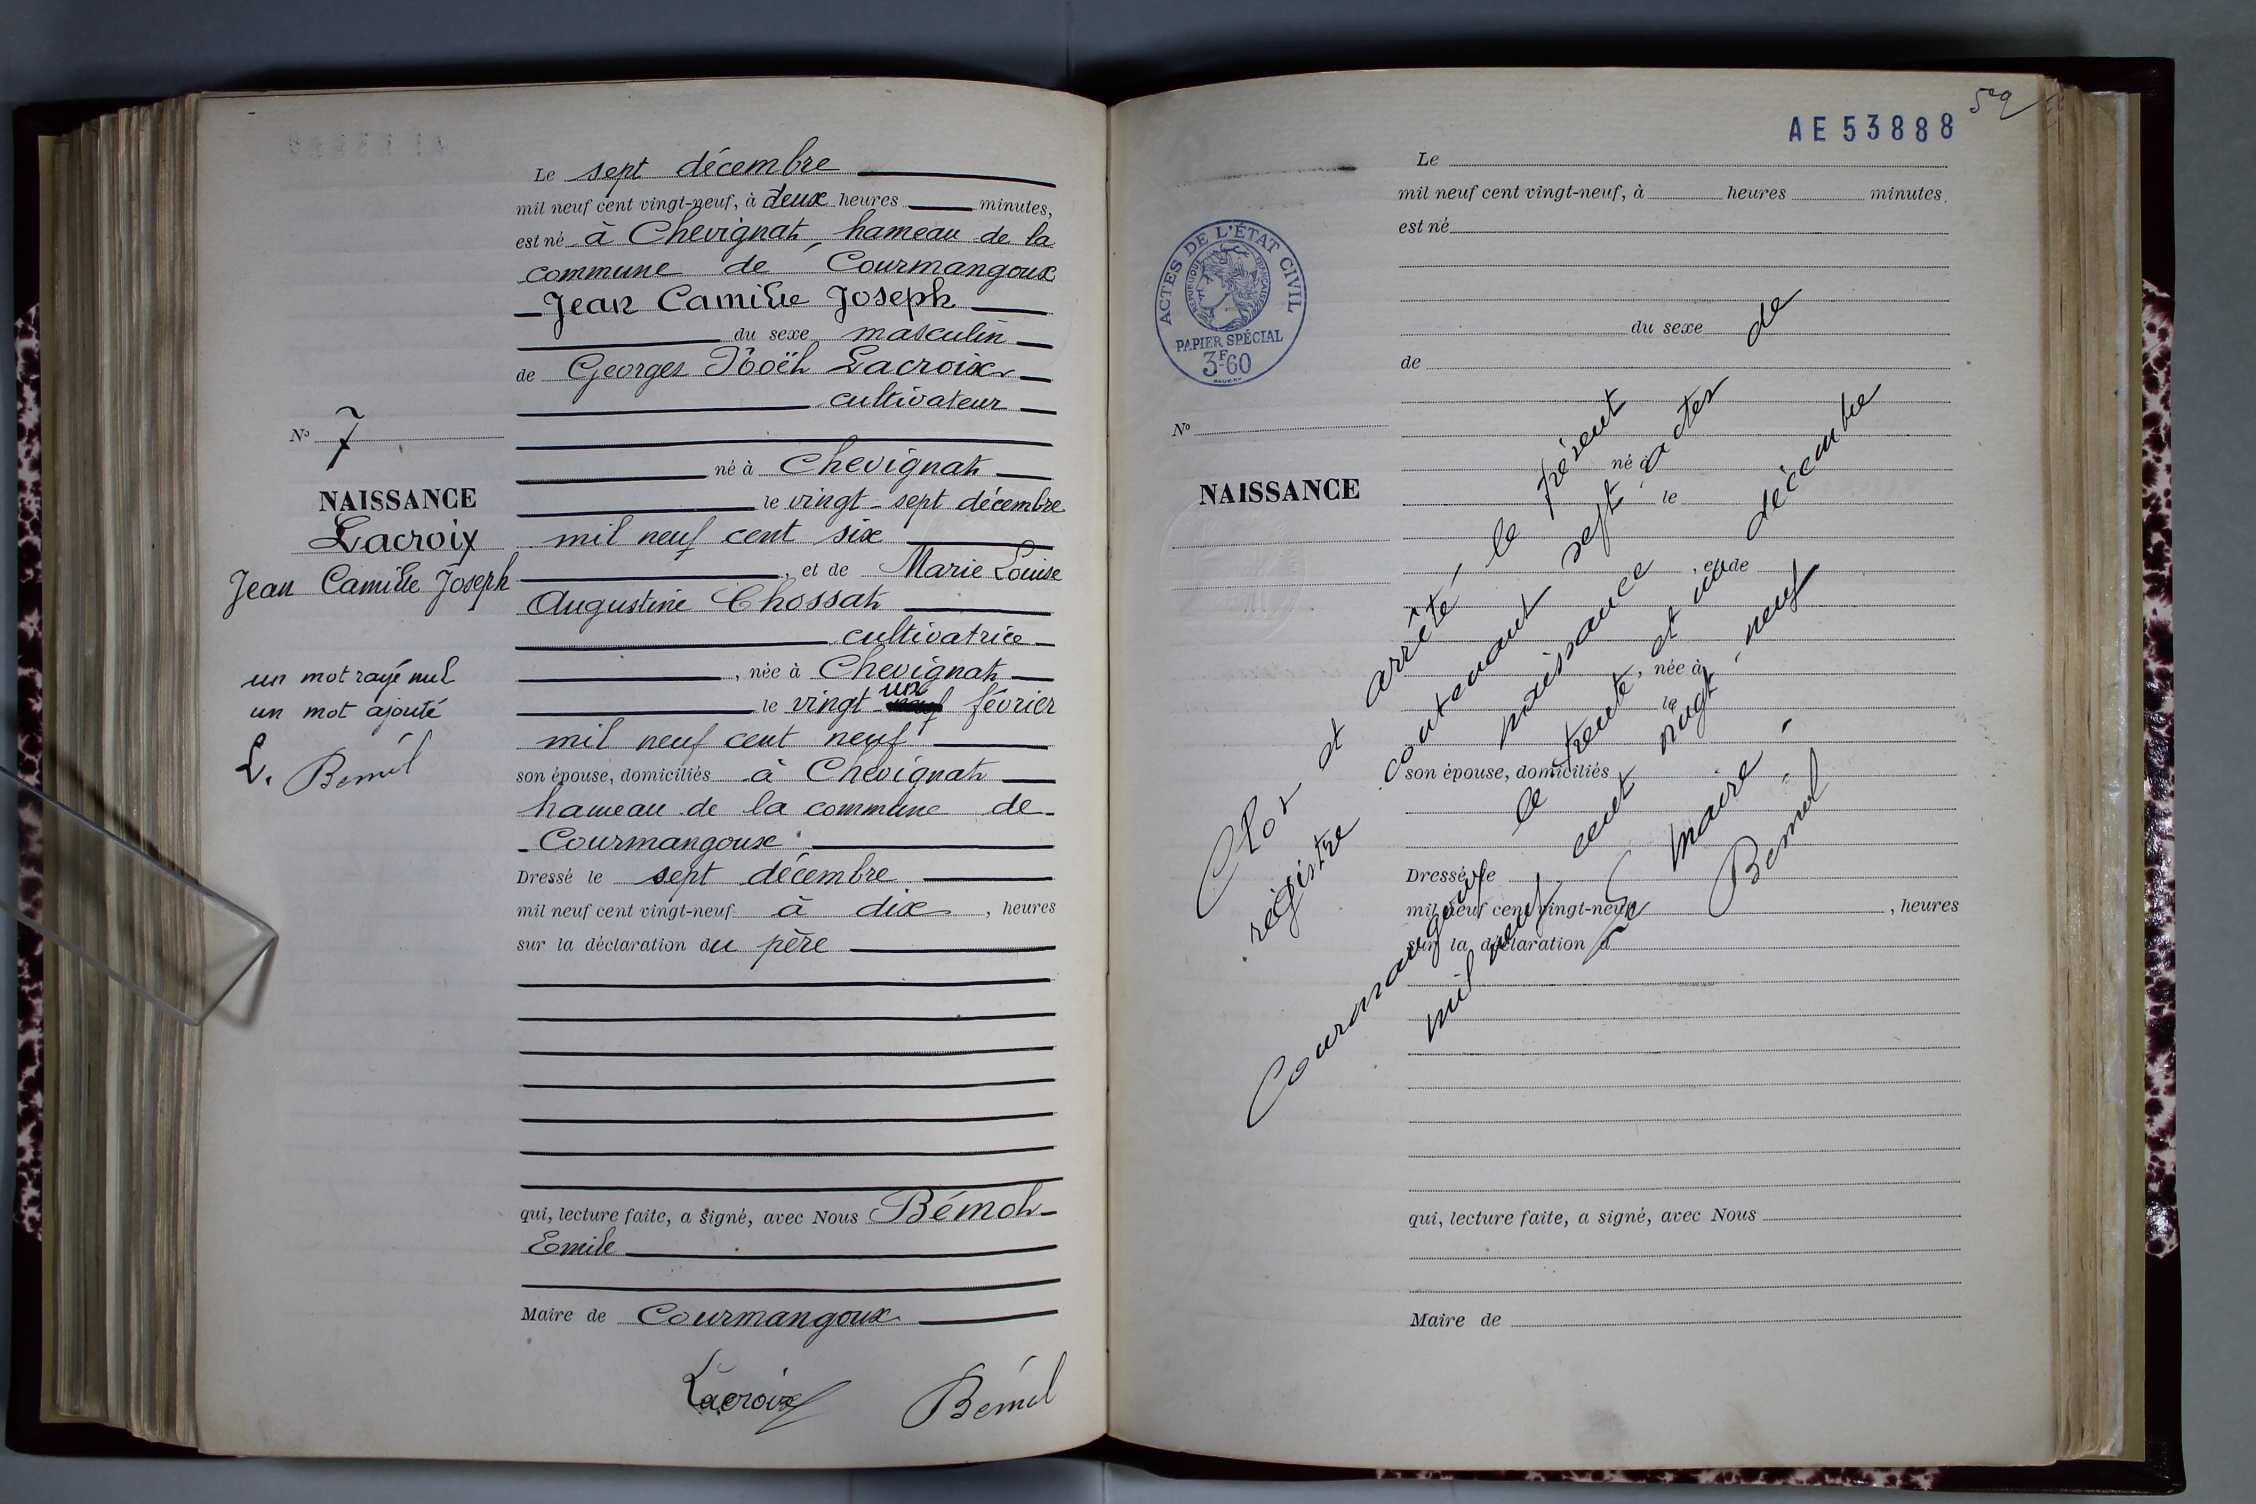 Le sept décembre
mil neuf cent vingt-neuf, à deux heures minutes,
est né à Chevignat, hameau de la
commune de Courmangoux
Jean Camille Joseph
du sexe masculin
de Georges Noël Lacroix
cultivateur
né à Chevignat
le vingt-sept décembre
mil neuf cent six
, et de Marie Louise
Augustine Chossat
cultivatrice
, née à Chevignat
un
le vingt février
mil neuf cent neuf
son épouse, domiciliés à Chevignat
hameau de la commune de
Courmangoux
Dressé le sept décembre
mil neuf cent vingt-neuf à dix , heures
sur la déclaration du père
qui, lecture faite, a signé, avec Nous Bémol
Emile
Maire de Courmangoux
Lacroix Bémol
No 7
NAISSANCE
Lacroix
Jean Camille Joseph
un mot rayé nul
un mot ajouté
L. Bémol
AE 53888
Le
mil neuf cent vingt-neuf, à heures minutes,
est né
du sexe
de
né à
le
, et de
, née à
le
son épouse, domiciliés
Dressé le
mil neuf cent vingt-neuf , heures
sur la déclaration d
qui, lecture faite, a signé, avec Nous
Maire de
ACTES DE L'ÉTAT CIVIL
RÉPUBLIQUE FRANÇAISE
PAPIER SPÉCIAL
3F-60
No
NAISSANCE
Clos et arrêté, le présent
registre contenant sept actes de
naissance
Courmangoux le trente et un décembre
mil neuf cent vingt-neuf
Le Maire,
Bémol